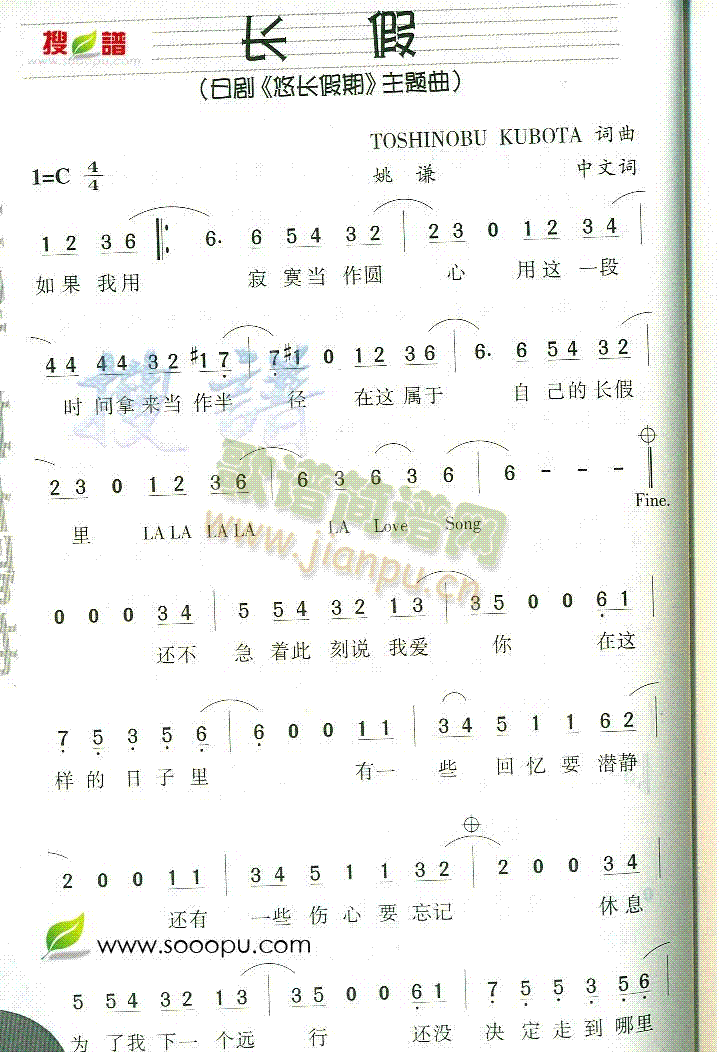 搜谱
www.sooopu.com
长 假
(日剧《悠长假期》主题曲)
TOSHINOBU KUBOTA 词曲
1=C 4/4 姚 谦 中文词
1 2 3 6 6. 6 5 4 3 2 2 3 0 1 2 3 4
如果 我用 寂 寞当 作圆 心 用这 一段
4 4 4 4 3 2 #1 7 7 #1 0 1 2 3 6 6. 6 5 4 3 2
时 间拿 来当 作半 径 在这 属于 自 己的 长假
2 3 0 1 2 3 6 6 3 6 3 6 6 - - -
Fine.
里 LA LA LA LA LA Love Song
歌谱简谱网
www.jianpu.cn
0 0 0 3 4 5 5 4 3 2 1 3 3 5 0 0 6 1
还不 急 着此 刻说 我爱 你 在这
7 5 3 5 6 6 0 0 1 1 3 4 5 1 1 6 2
样 的 日 子 里 有一 些 回 忆 要 潜静
2 0 0 1 1 3 4 5 1 1 3 2 2 0 0 3 4
还有 一些 伤 心 要 忘记 休息
www.sooopu.com
5 5 4 3 2 1 3 3 5 0 0 6 1 7 5 5 3 5 6
为 了我 下一 个远 行 还没 决 定 走 到 哪里